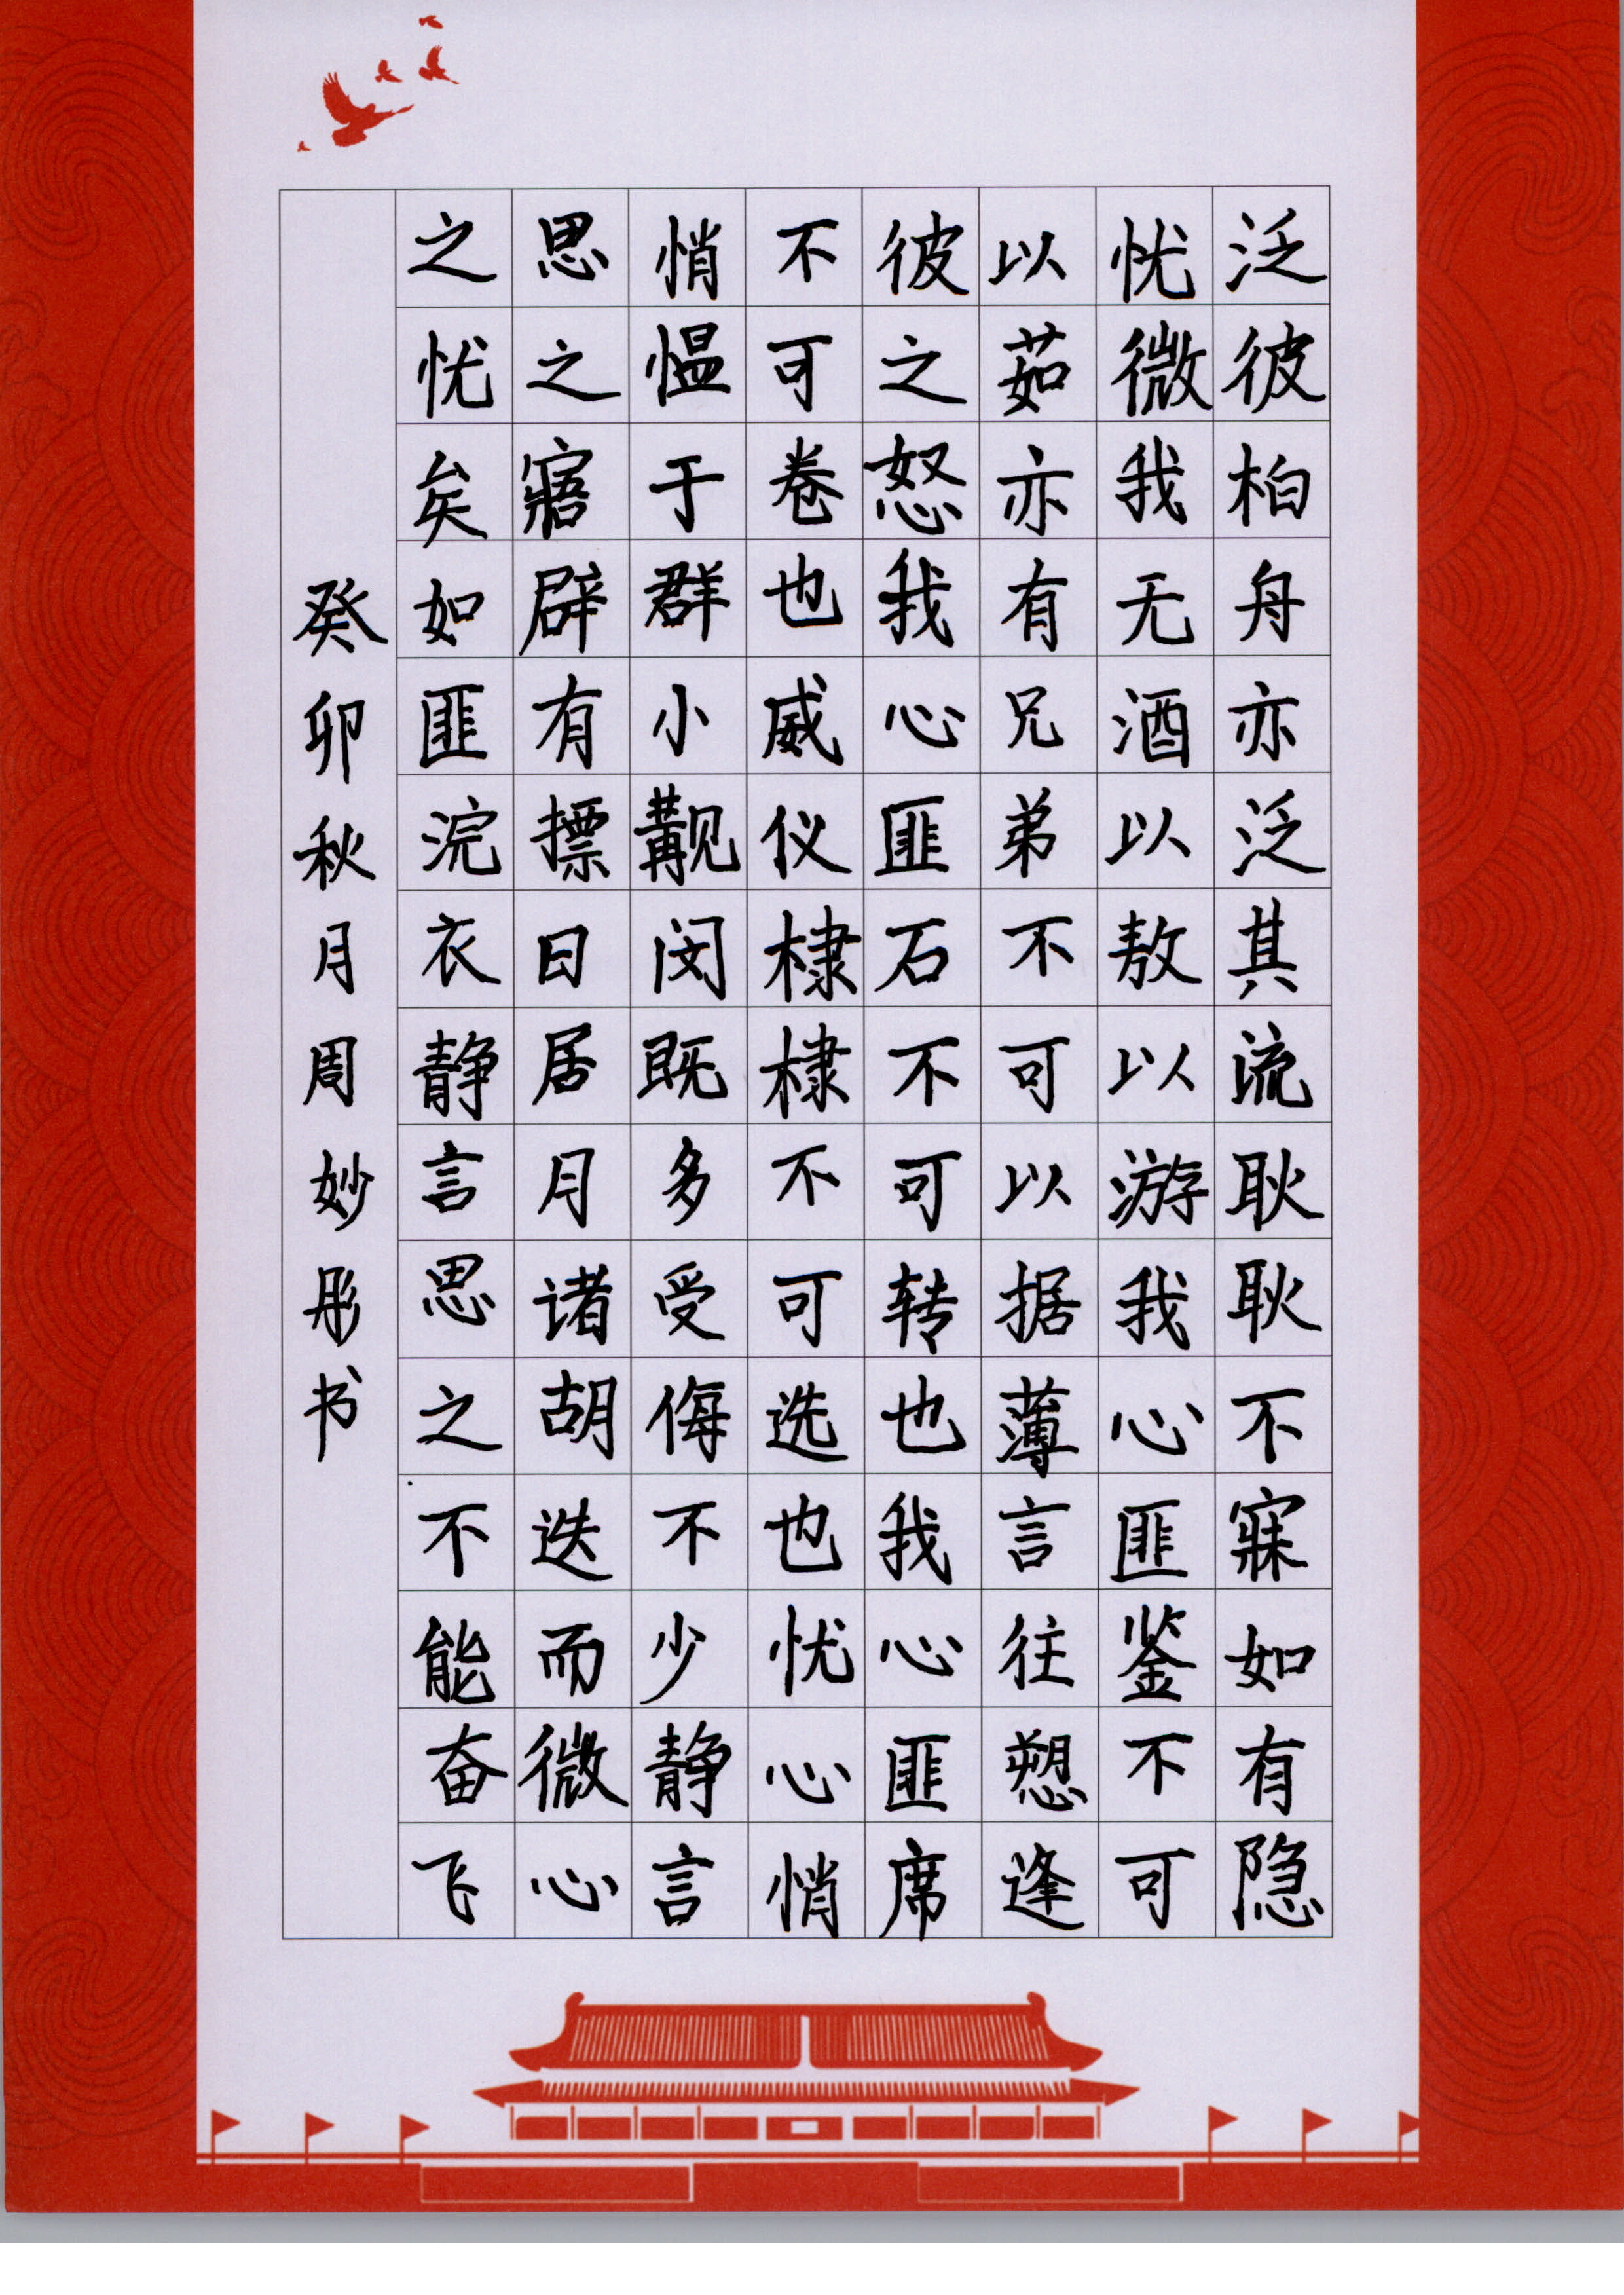 泛彼柏舟亦泛其流耿耿不寐如有隐
忧微我无酒以敖以游我心匪鉴不可
以茹亦有兄弟不可以据薄言往愬逢
彼之怒我心匪石不可转也我心匪席
不可卷也威仪棣棣不可选也忧心悄
悄愠于群小觏闵既多受侮不少静言
思之寤辟有摽日居月诸胡迭而微心
之忧矣如匪浣衣静言思之不能奋飞
癸卯秋月周妙彤书